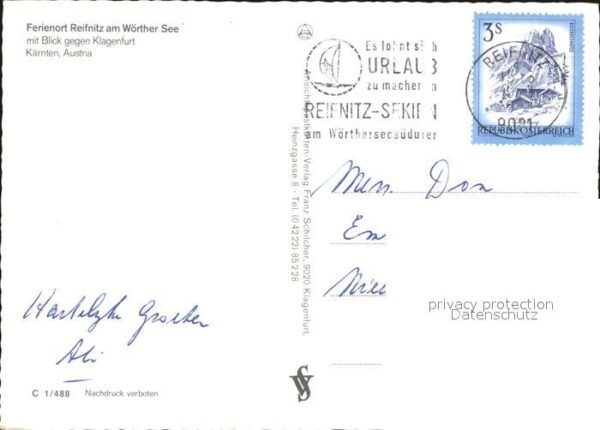 Ferienort Reifnitz am Wörther See
mit Blick gegen Klagenfurt
Kärnten, Austria
Es lohnt sich
URLAUB
zu machen in
REIFNITZ-SEKIRN
am Wörtherseesüdufer
3S
REIFNITZ
9081
REPUBLIK ÖSTERREICH
Ansichtspostkarten-Verlag Franz Schilcher, 9020 Klagenfurt,
Heinzgasse 8 · Tel. (04222) 85228
Hartelijke Groeten
Ali
C 1/488 Nachdruck verboten
privacy protection
Datenschutz